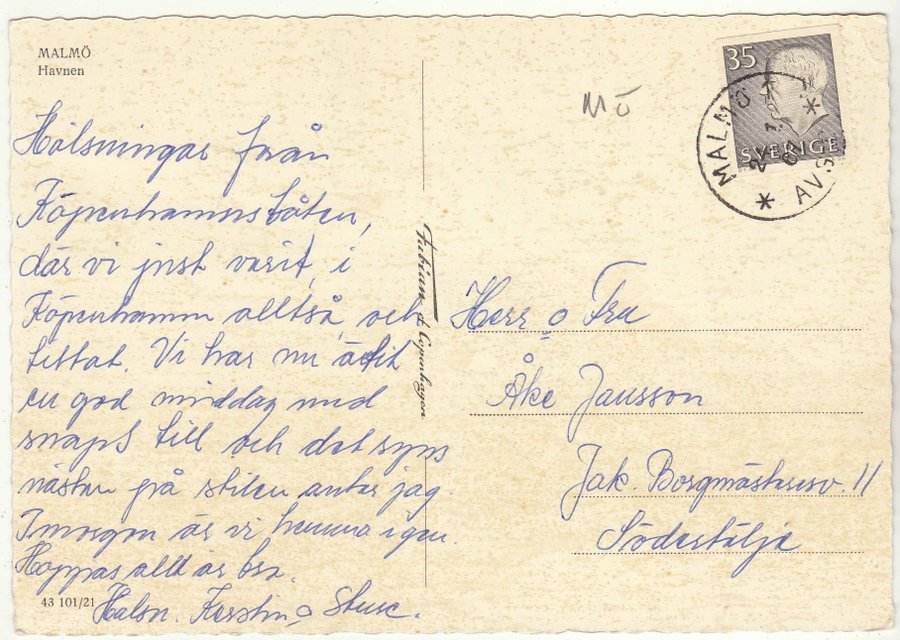 MALMÖ
Havnen
Hälsningar från
Köpenhamnsbåten,
där vi just varit, i
Köpenhamn alltså, och
tittat. Vi har nu ätit
en god middag med
snaps till och det syns
nästan på stilen antar jag.
Imorgon är vi hemma igen.
Hoppas allt är bra.
Hälsn. Kerstin o Sture.
43 101/21
Fabian of Copenhagen
MÖ
35
SVERIGE
MALMÖ
AV.
Herr o Fru
Åke Jansson
Jak. Borgmästaresv. 11
Södertälje